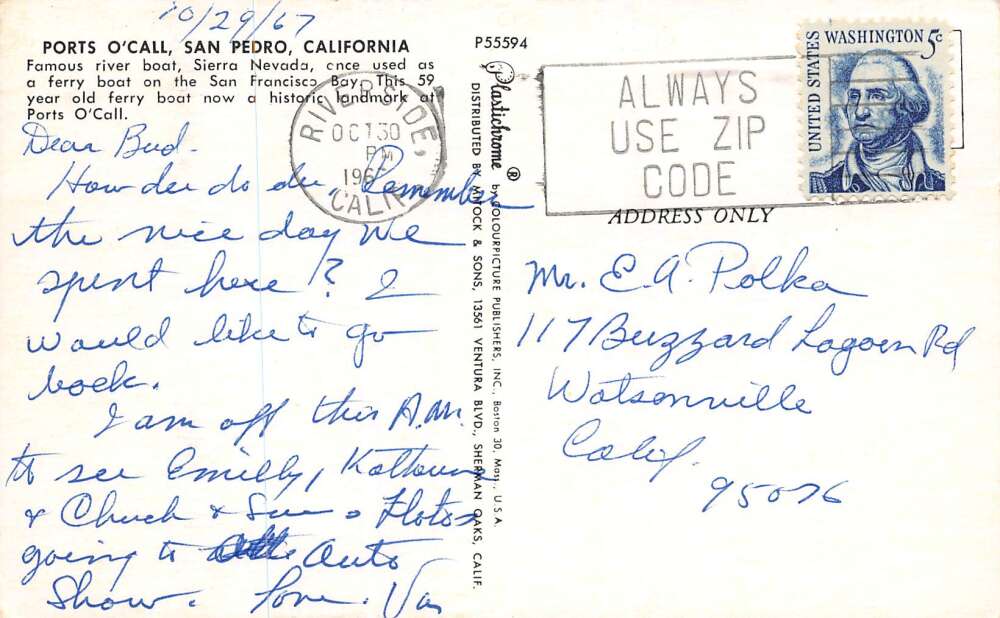 10/29/67
PORTS O'CALL, SAN PEDRO, CALIFORNIA
Famous river boat, Sierra Nevada, once used as
a ferry boat on the San Francisco Bay. This 59
year old ferry boat now a historic landmark at
Ports O'Call.
Dear Bud.
How der do der, Remember
the nice day we
spent here? I
would like to go
back.
I am off this A.M.
to see Emilly,
& Chuck & Sue
going to Auto
Show. Love. Van
P55594
Plastichrome ® by COLOURPICTURE PUBLISHERS, INC., Boston 30, Mass., U.S.A.
DISTRIBUTED BY MITOCK & SONS, 13561 VENTURA BLVD., SHERMAN OAKS, CALIF.
RIVERSIDE,
OCT 30
PM
196
CALIF
ALWAYS
USE ZIP
CODE
UNITED STATES
WASHINGTON 5c
ADDRESS ONLY
Mr. E.A. Polka
117 Buzzard Lagoon Rd
Watsonville
Calif.
95076